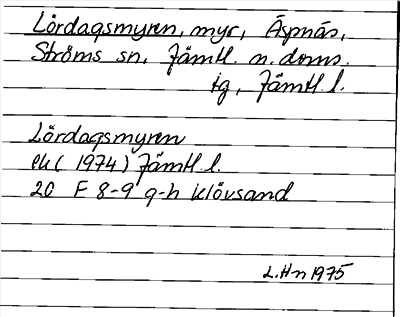 Lördagsmyren, myr, Äspnäs,
Ströms sn, Jämtl. n. doms.
tg, Jämtl. l.
Lördagsmyren
ek (1974) Jämtl. l.
20 F 8-9 g-h Klövsand
L. Hn 1975